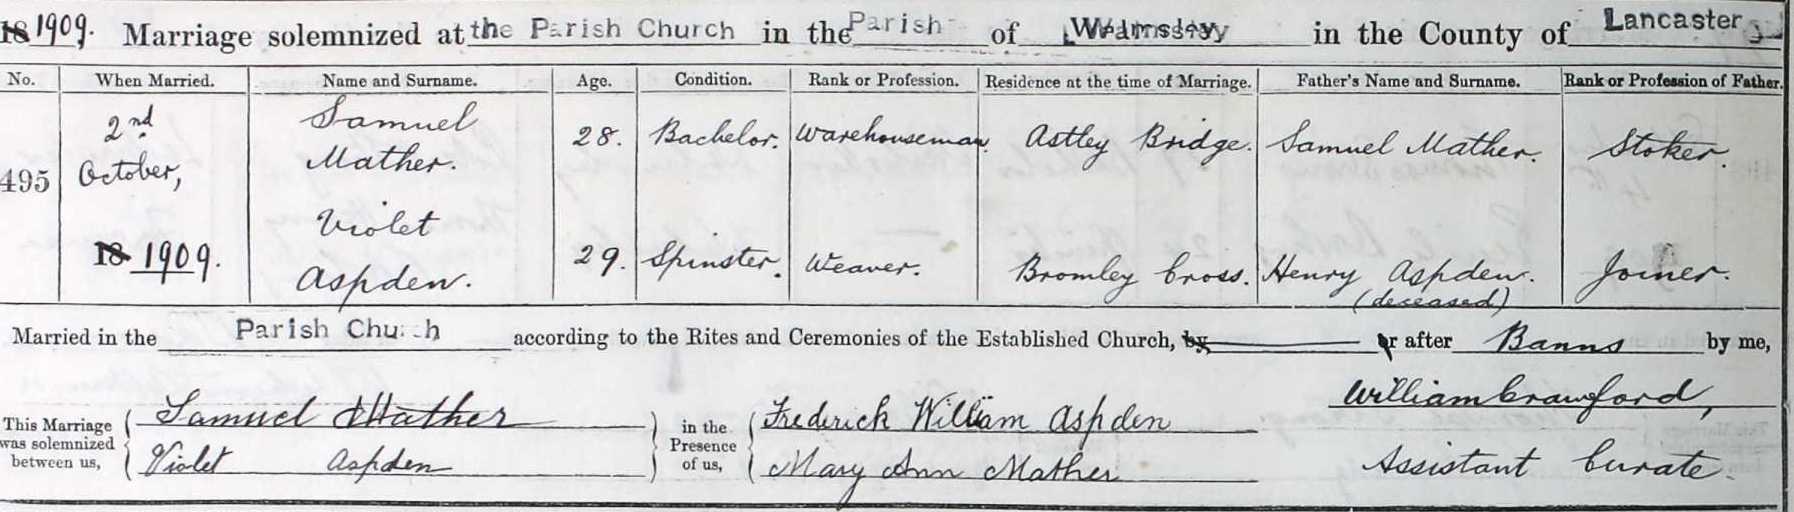 18 1909. Marriage solemnized at the Parish Church in the Parish of Walmsley in the County of Lancaster
No. When Married. Name and Surname. Age. Condition. Rank or Profession. Residence at the time of Marriage. Father's Name and Surname. Rank or Profession of Father.
495 2nd October, 18 1909. Samuel Mather. 28. Bachelor. Warehouseman. Astley Bridge. Samuel Mather. Stoker.
Violet Aspden. 29. Spinster. Weaver. Bromley Cross. Henry Aspden. (deceased) Joiner.
Married in the Parish Church according to the Rites and Ceremonies of the Established Church, by or after Banns by me,
This Marriage was solemnized between us, Samuel Mather in the Presence of us, Frederick William Aspden William Crawford,
Violet Aspden Mary Ann Mather Assistant Curate.